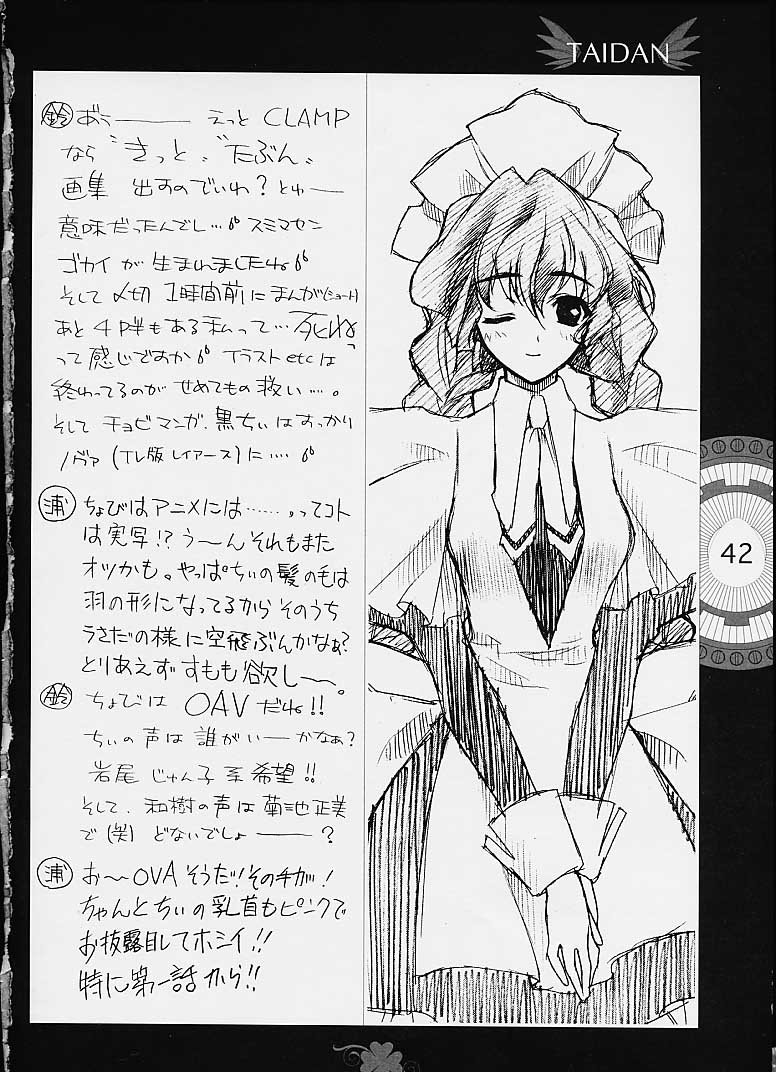 TAIDAN
鈴 あぅ―――― えっと CLAMP
なら “きっと”、“たぶん”、
画集 出すのでいわ？とゅ――
意味だったんでし…。スミマセン
ゴカイ が 生まれましたね
そして 〆切 1時間前 に まんが(ショート)
あと 4P半もある 私って…「死ね」
って 感じですか イラスト etc は
終わってるのが せめてもの 救い….。
そして チョビマンガ、黒ちぃは すっかり
ノヴァ (TV版 レイアース) に….
浦 ちょびはアニメには……。ってコト
は実写!? う～ん それもまた
オツかも。やっぱちぃの髪の毛は
羽の形になってるから そのうち
うさだの様に空飛ぶんかなぁ?
とりあえず すもも欲し～。
鈴 ちょびは OAV だね!!
ちぃの声は 誰がい――かなぁ?
岩尾 じゅん子 系 希望!!
そして、和樹の声は菊池正美
で (笑) どないでしょ――――?
浦 お～OVA そうだ! その手が!
ちゃんとちぃの乳首もピンクで
お披露目してホシイ!!
特に第一話から!!
42